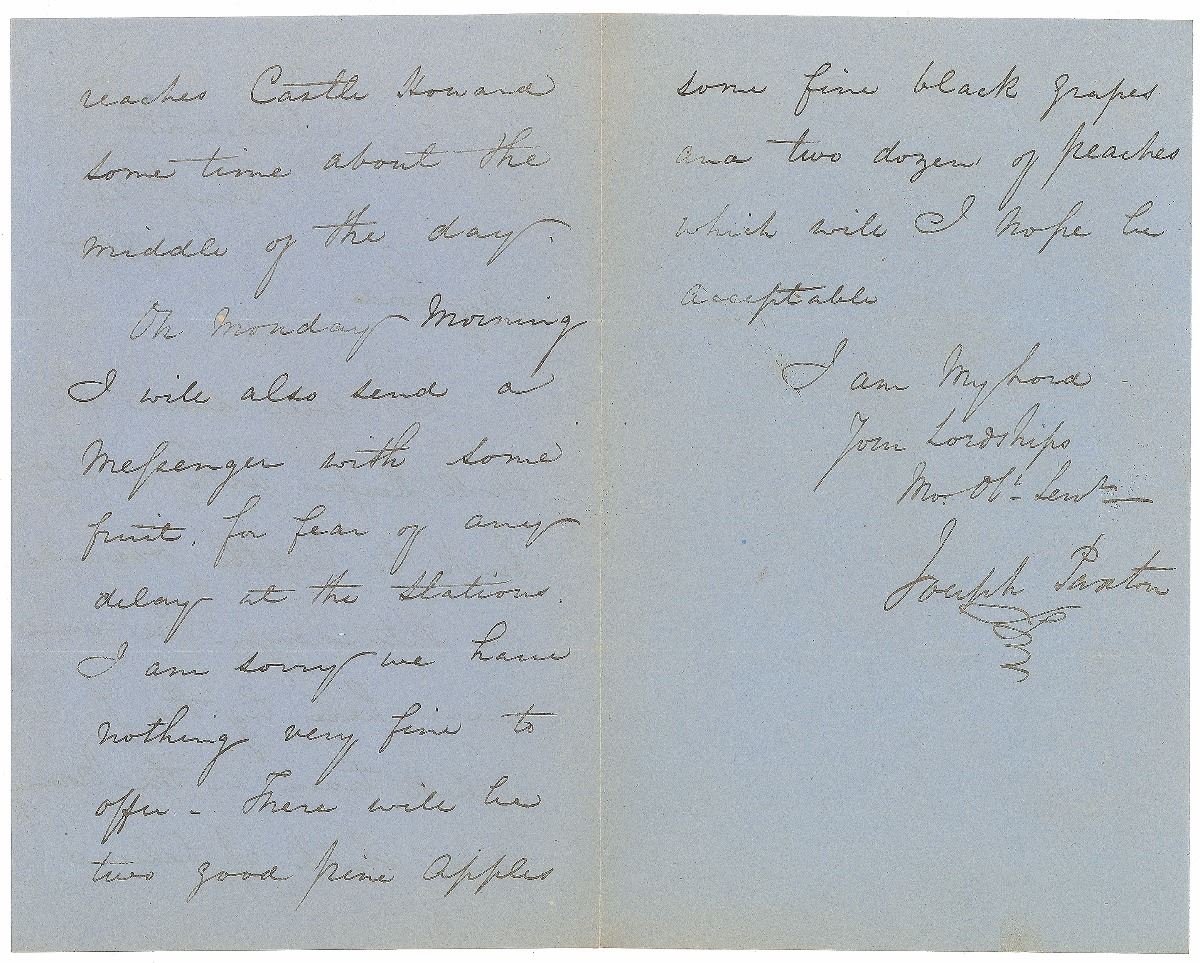 reaches Castle Howard
some time about the
middle of the day.
On Monday Morning
I will also send a
Messenger with some
fruit, for fear of any
delay at the Stations.
I am sorry we have
nothing very fine to
offer - There will be
two good pine Apples
some fine black grapes
and two dozen of peaches
which will I hope be
acceptable
I am My Lord
Your Lordships
Mo. Ob.t Servt
Joseph Paxton